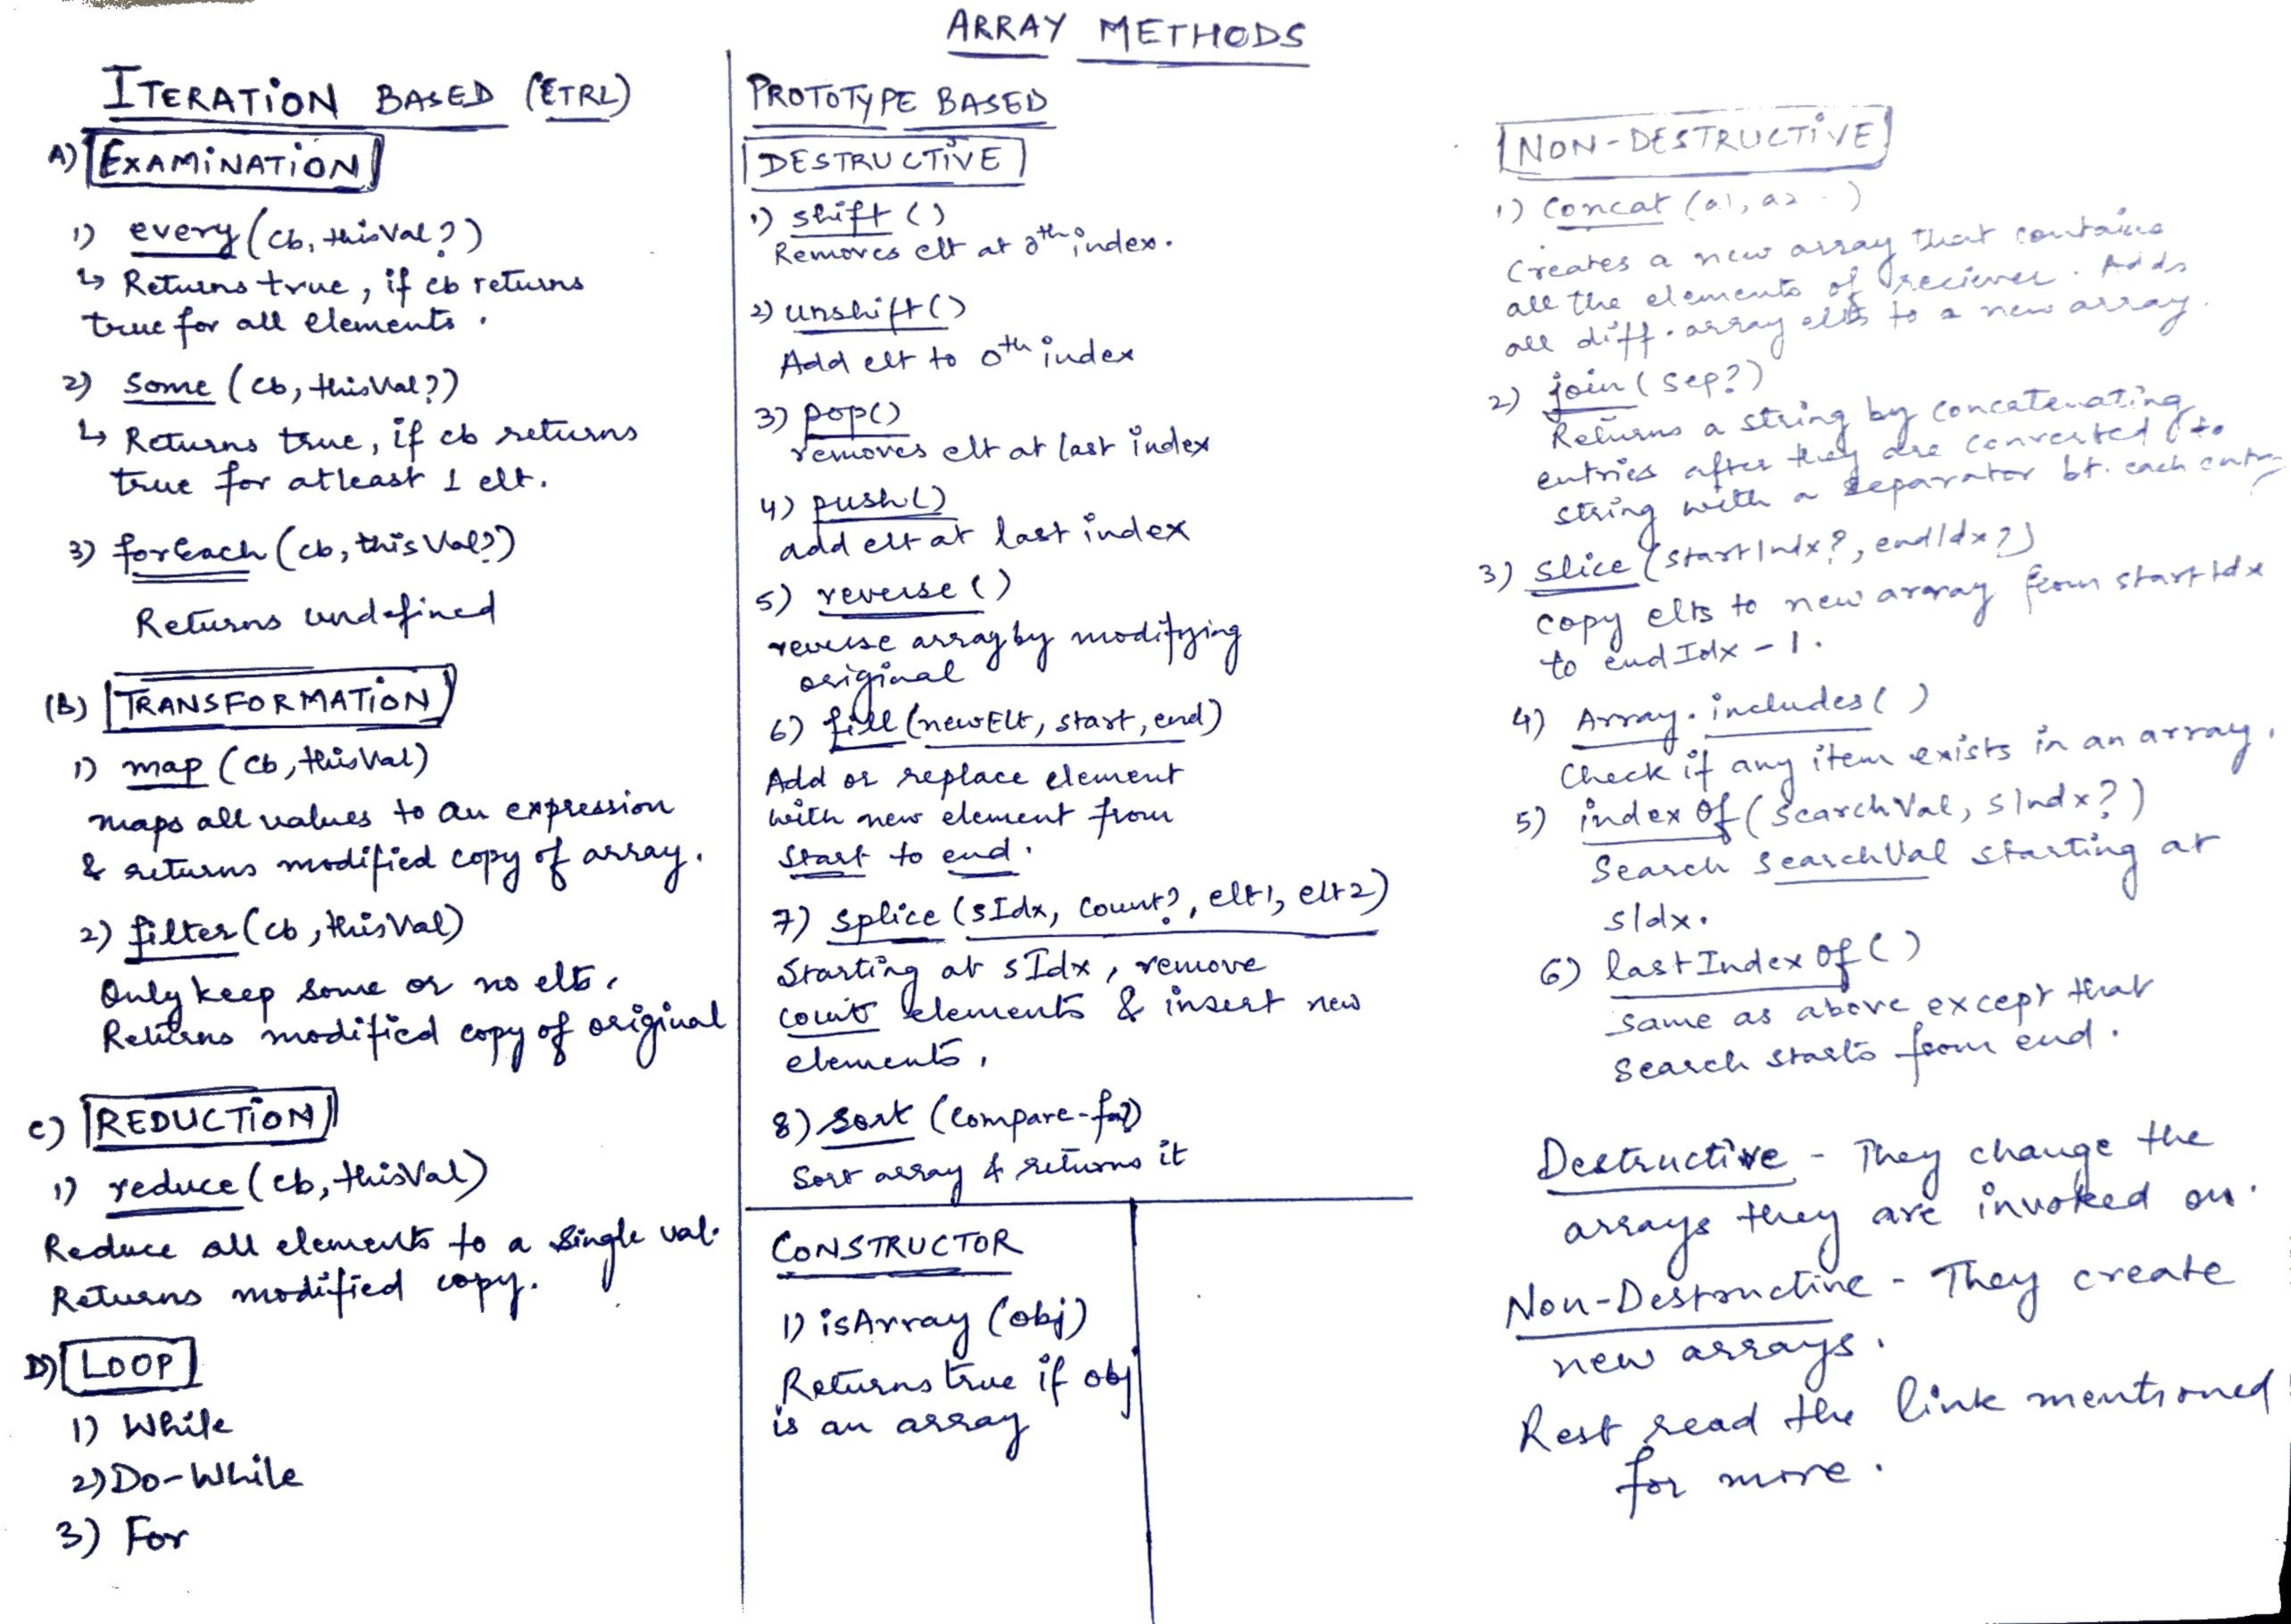 ARRAY METHODS
ITERATION BASED (ETRL)
A) EXAMINATION
1) every (cb, thisVal?)
↳ Returns true, if cb returns
true for all elements.
2) some (cb, thisVal?)
↳ Returns true, if cb returns
true for atleast 1 elt.
3) forEach (cb, thisVal?)
Returns undefined
(B) TRANSFORMATION
1) map (cb, thisVal)
maps all values to an expression
& returns modified copy of array.
2) filter (cb, thisVal)
Only keep some or no elts.
Returns modified copy of original
C) REDUCTION
1) reduce (cb, thisVal)
Reduce all elements to a single val.
Returns modified copy.
D) LOOP
1) While
2) Do-While
3) For
PROTOTYPE BASED
DESTRUCTIVE
1) shift ()
Removes elt at 0th index.
2) unshift ()
Add elt to 0th index
3) pop()
removes elt at last index
4) push()
add elt at last index
5) reverse ()
reverse array by modifying
original
6) fill (newElt, start, end)
Add or replace element
with new element from
start to end.
7) splice (sIdx, count?, elt1, elt2)
Starting at sIdx, remove
count elements & insert new
elements.
8) sort (compare-fn?)
Sort array & returns it
CONSTRUCTOR
1) isArray (obj)
Returns true if obj
is an array
NON-DESTRUCTIVE
1) Concat (a1, a2 ..)
Creates a new array that contains
all the elements of reciever. Adds
all diff. array elts to a new array.
2) join (sep?)
Returns a string by concatenating
entries after they are converted to
string with a separator bt. each entry
3) slice (startIndx?, endIdx?)
copy elts to new array from startIdx
to endIdx - 1.
4) Array.includes ()
Check if any item exists in an array.
5) indexOf (searchVal, sIndx?)
Search searchVal starting at
sIdx.
6) lastIndexOf ()
same as above except that
search starts from end.
Destructive - They change the
arrays they are invoked on.
Non-Destructive - They create
new arrays.
Rest read the link mentioned
for more.